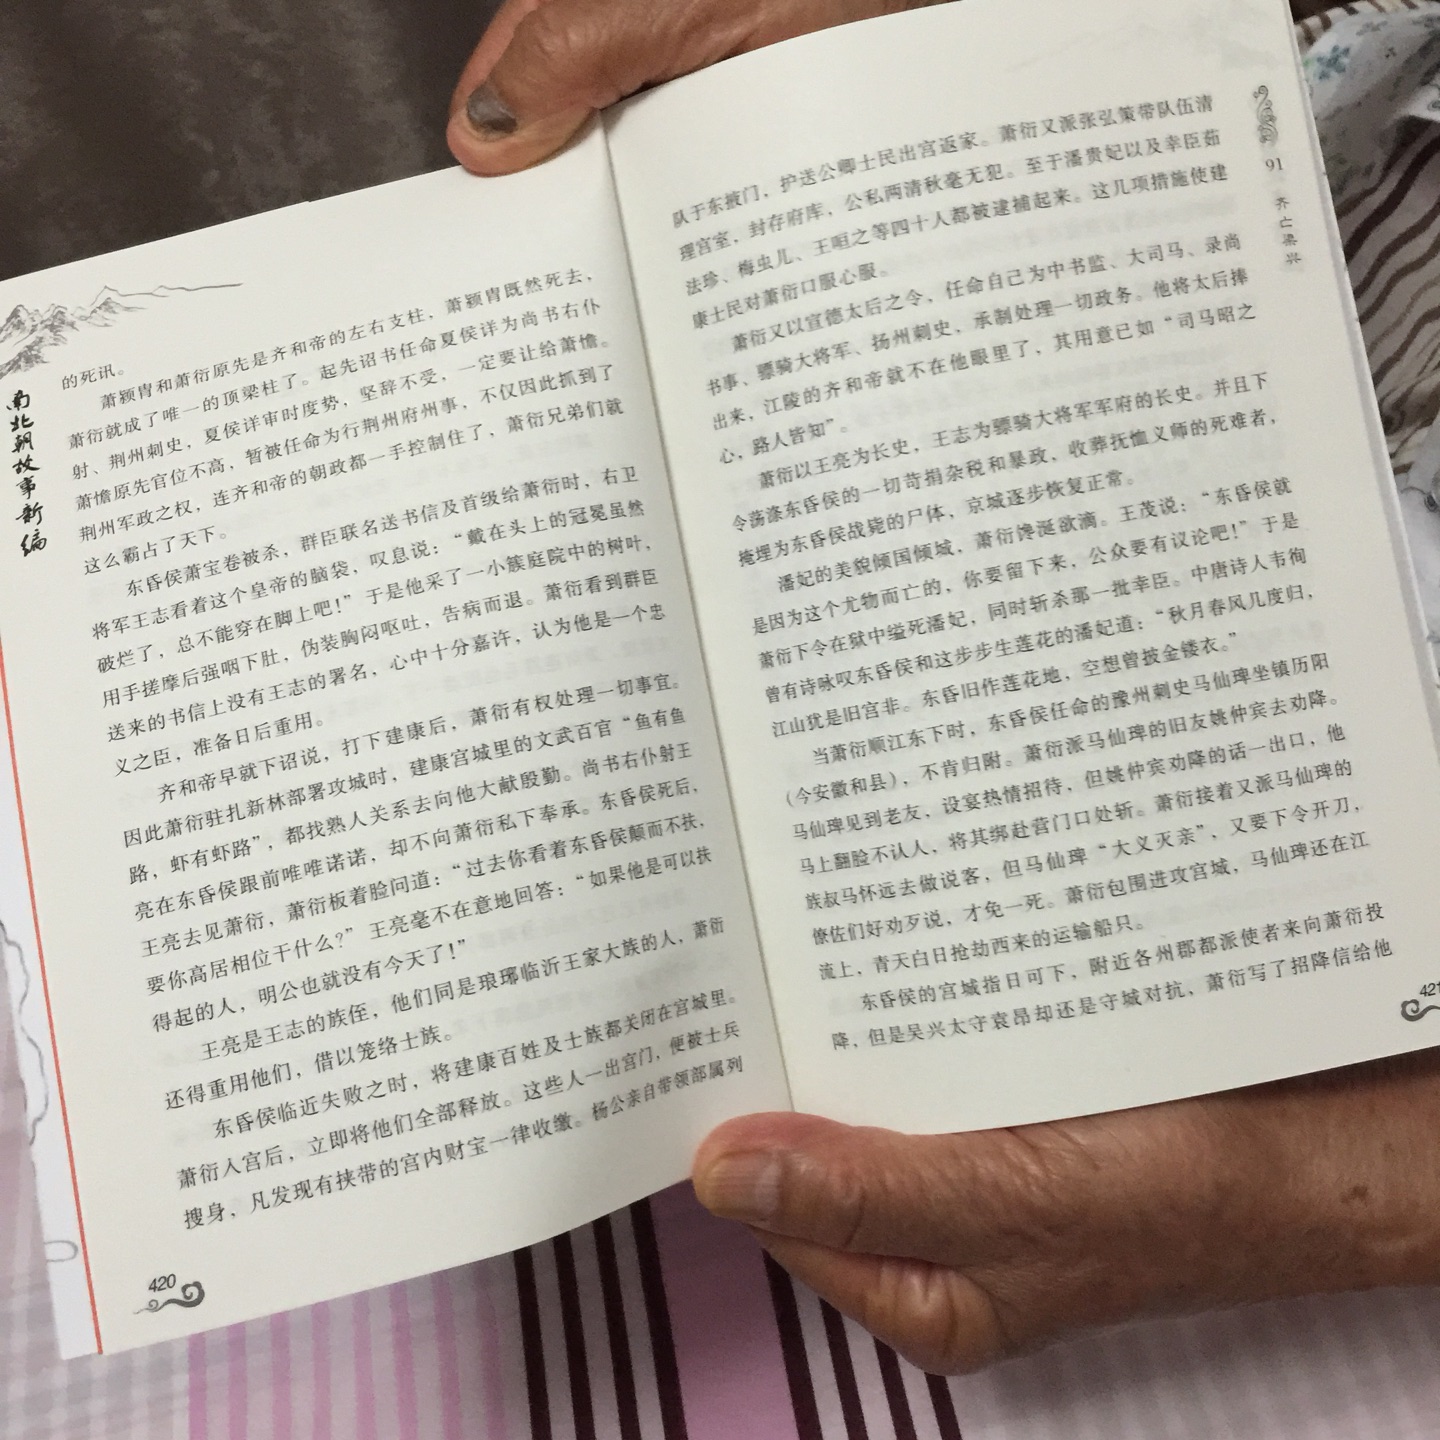 南北朝故事新编
的死讯。
萧颖胄和萧衍原先是齐和帝的左右支柱，萧颖胄既然死去，
萧衍就成了唯一的顶梁柱了。起先诏书任命夏侯详为尚书右仆
射、荆州刺史，夏侯详审时度势，坚辞不受，一定要让给萧憺。
萧憺原先官位不高，暂被任命为行荆州府州事，不仅因此抓到了
荆州军政之权，连齐和帝的朝政都一手控制住了，萧衍兄弟们就
这么霸占了天下。
东昏侯萧宝卷被杀，群臣联名送书信及首级给萧衍时，右卫
将军王志看着这个皇帝的脑袋，叹息说：“戴在头上的冠冕虽然
破烂了，总不能穿在脚上吧！”于是他采了一小簇庭院中的树叶，
用手搓摩后强咽下肚，伪装胸闷呕吐，告病而退。萧衍看到群臣
送来的书信上没有王志的署名，心中十分嘉许，认为他是一个忠
义之臣，准备日后重用。
齐和帝早就下诏说，打下建康后，萧衍有权处理一切事宜。
因此萧衍驻扎新林部署攻城时，建康宫城里的文武百官“鱼有鱼
路，虾有虾路”，都找熟人关系去向他大献殷勤。尚书右仆射王
亮在东昏侯跟前唯唯诺诺，却不向萧衍私下奉承。东昏侯死后，
王亮去见萧衍，萧衍板着脸问道：“过去你看着东昏侯颠而不扶，
要你高居相位干什么？”王亮毫不在意地回答：“如果他是可以扶
得起的人，明公也就没有今天了！”
王亮是王志的族侄，他们同是琅琊临沂王家大族的人，萧衍
还得重用他们，借以笼络士族。
东昏侯临近失败之时，将建康百姓及士族都关闭在宫城里。
萧衍入宫后，立即将他们全部释放。这些人一出宫门，便被士兵
搜身，凡发现有挟带的宫内财宝一律收缴。杨公亲自带领部属列
420
队于东掖门，护送公卿士民出宫返家。萧衍又派张弘策带队伍清
理宫室，封存府库，公私两清秋毫无犯。至于潘贵妃以及幸臣茹
法珍、梅虫儿、王咺之等四十人都被逮捕起来。这几项措施使建
康士民对萧衍口服心服。
萧衍又以宣德太后之令，任命自己为中书监、大司马、录尚
书事、骠骑大将军、扬州刺史，承制处理一切政务。他将太后捧
出来，江陵的齐和帝就不在他眼里了，其用意已如“司马昭之
心，路人皆知”。
萧衍以王亮为长史，王志为骠骑大将军军府的长史。并且下
令荡涤东昏侯的一切苛捐杂税和暴政，收葬抚恤义师的死难者，
掩埋为东昏侯战毙的尸体，京城逐步恢复正常。
潘妃的美貌倾国倾城，萧衍馋涎欲滴。王茂说：“东昏侯就
是因为这个尤物而亡的，你要留下来，公众要有议论吧！”于是
萧衍下令在狱中缢死潘妃，同时斩杀那一批幸臣。中唐诗人韦徇
曾有诗咏叹东昏侯和这步步生莲花的潘妃道：“秋月春风几度归，
江山犹是旧宫非。东昏旧作莲花地，空想曾披金镂衣。”
当萧衍顺江东下时，东昏侯任命的豫州刺史马仙琕坐镇历阳
（今安徽和县），不肯归附。萧衍派马仙琕的旧友姚仲宾去劝降。
马仙琕见到老友，设宴热情招待，但姚仲宾劝降的话一出口，他
马上翻脸不认人，将其绑赴营门口处斩。萧衍接着又派马仙琕的
族叔马怀远去做说客，但马仙琕“大义灭亲”，又要下令开刀，
僚佐们好劝歹说，才免一死。萧衍包围进攻宫城，马仙琕还在江
流上，青天白日抢劫西来的运输船只。
东昏侯的宫城指日可下，附近各州郡都派使者来向萧衍投
降，但是吴兴太守袁昂却还是守城对抗，萧衍写了招降信给他
91 齐亡梁兴
421